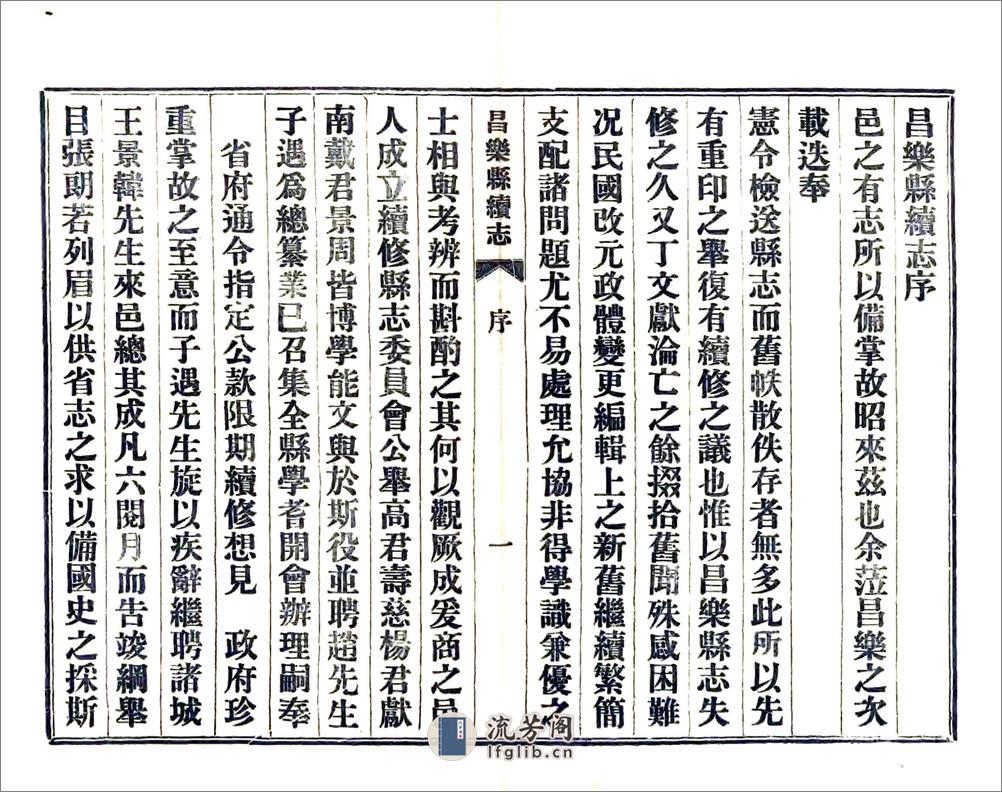 昌樂縣續志序
邑之有志所以備掌故昭來茲也余蒞昌樂之次
載迭奉
憲令檢送縣志而舊帙散佚存者無多此所以先
有重印之舉復有續修之議也惟以昌樂縣志失
修之久又丁文獻淪亡之餘掇拾舊聞殊感困難
况民國改元政體變更編輯上之新舊繼續繁簡
支配諸問題尤不易處理允協非得學識兼優之
昌樂縣續志 序 一
士相與考辨而斟酌之其何以觀厥成爰商之邑
人成立續修縣志委員會公舉高君壽慈楊君獻
南戴君景周皆博學能文與於斯役並聘趙先生
子遇爲總纂業已召集全縣學耆開會辦理嗣奉
省府通令指定公款限期續修想見 政府珍
重掌故之至意而子遇先生旋以疾辭繼聘諸城
王景韓先生來邑總其成凡六閱月而告竣綱舉
目張朗若列眉以供省志之求以備國史之採斯
流芳阁
lfglib.cn